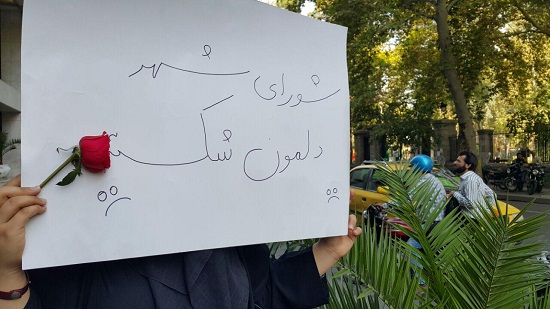 شورای شهر
دلمون شکست